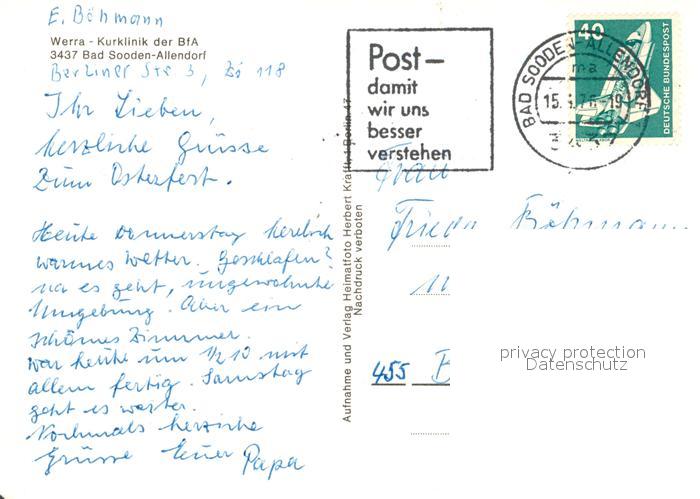 E. Böhmann
Werra - Kurklinik der BfA
3437 Bad Sooden-Allendorf
Berliner Str 3, Zi 118
Ihr Lieben,
herzliche Grüsse
zum Osterfest.
Heute Donnerstag herrlich
warmes Wetter. Geschlafen?
na es geht, ungewohnte
Umgebung. Aber ein
schönes Zimmer.
War heute um 1/2 10 mit
allem fertig. Samstag
geht es weiter.
Nochmals herzliche
Grüsse Euer Papa
Aufnahme und Verlag Heimatfoto Herbert Krafft, 1 Berlin 47
Nachdruck verboten
Post-
damit
wir uns
besser
verstehen
BAD SOODEN-ALLENDORF
ma
40
DEUTSCHE BUNDESPOST
Frau
Frieda Böhmann
455 B
privacy protection
Datenschutz